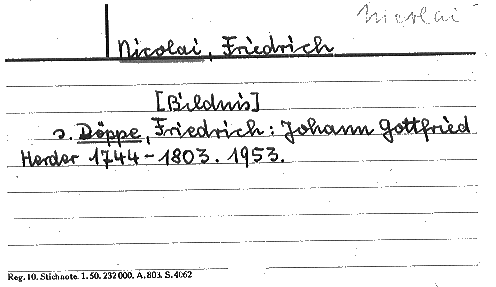 Nicolai
Nicolai, Friedrich
[Bildnis]
s. Döppe, Friedrich: Johann Gottfried
Herder 1744-1803. 1953.
Reg. 10. Stichnote. 1. 50. 232000. A. 803. S. 4062